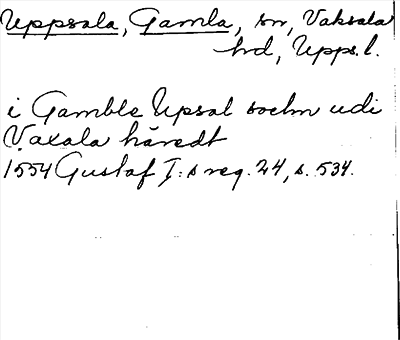 Uppsala, Gamla, sn, Vaksala
hd, Upps. l.
i Gamble Upsal sochn udi
Vaxala häredt
1554 Gustaf I:s reg. 24, s. 534.